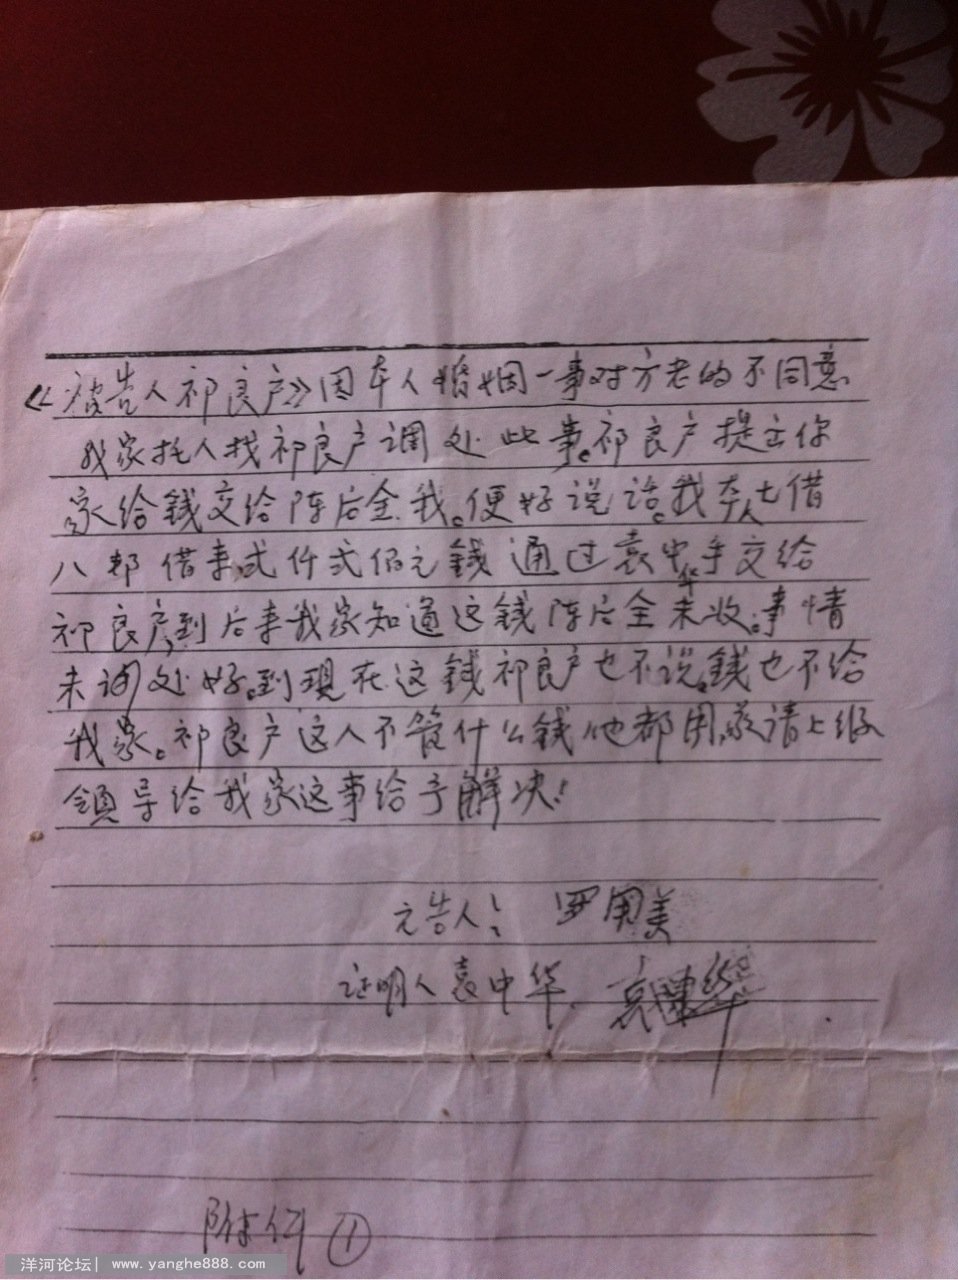 《被告人祁良户》因本人婚姻一事对方老的不同意
我家托人找祁良户调处此事。祁良户提出你
家给錢交给陈后全.我。便好说话。我本人七借
八挪借来弍仟弍佰元錢通过袁中华手交给
祁良户,到后来我家知道这錢陈后全未收。事情
未调处好。到现在这錢祁良户也不说。錢也不给
我家。祁良户这人不管什么錢他都用,敬请上级
领导给我家这事给予解决!
元告人: 罗用美
证明人袁中华.
附件①
洋河论坛| www.yanghe888.com